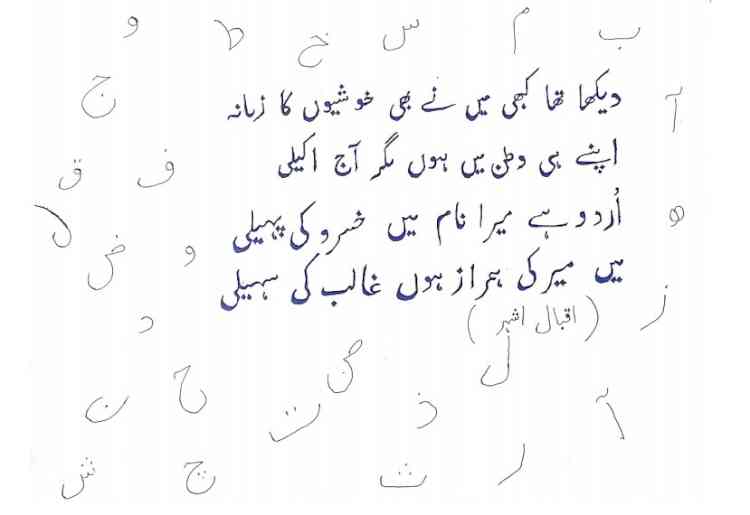 ب م س خ ط و
ج
دیکھا تھا کبھی میں نے بھی خوشیوں کا زمانہ
آ
اپنے ہی وطن میں ہوں مگر آج اکیلی
ف ق
اُردو ہے میرا نام میں خسرو کی پہیلی
ھ
و ض
میں میر کی ہمراز ہوں غالب کی سہیلی
(اقبال اشہر)
ز
د
ل ص ح
آ ذ ت ن
ر ث چ ش